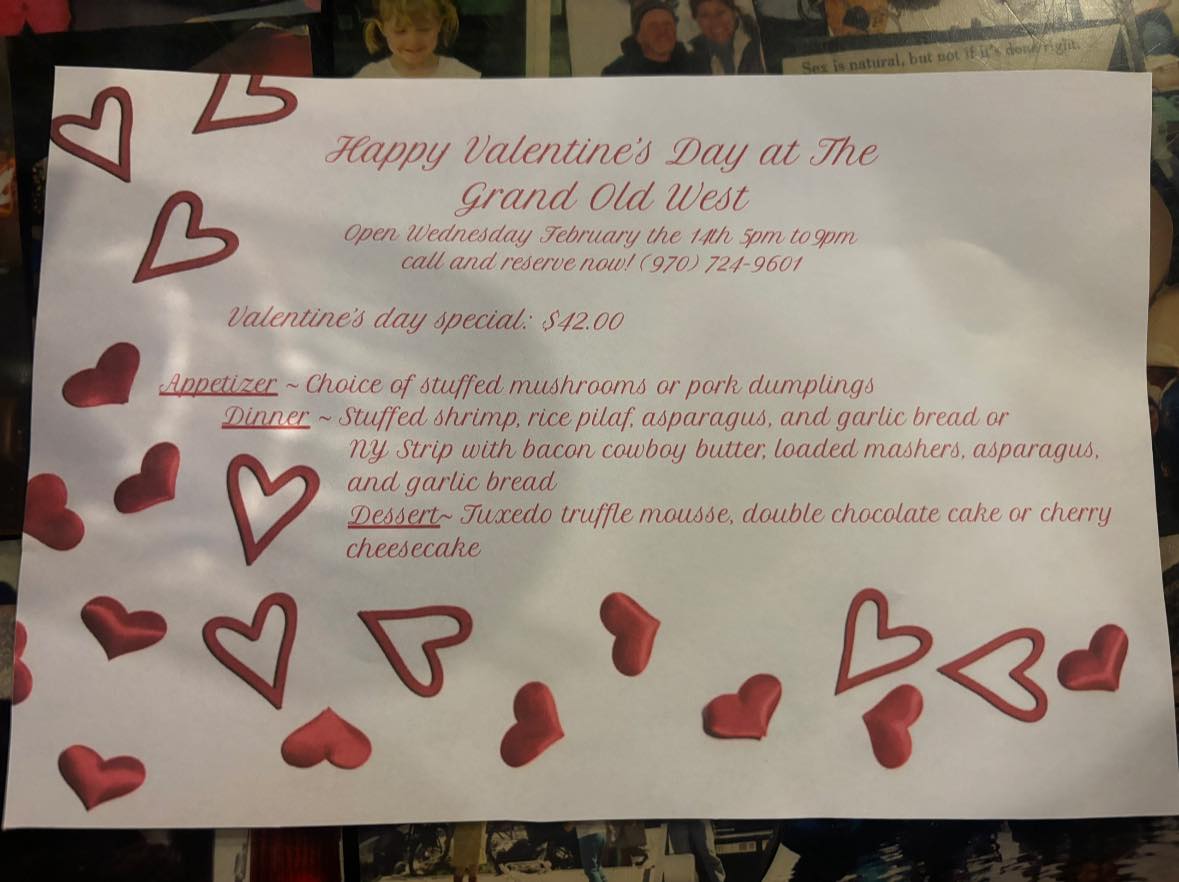 Sex is natural, but not if it's done right.
Happy Valentine's Day at The
Grand Old West
Open Wednesday February the 14th 5pm to 9pm
call and reserve now! (970) 724-9601
Valentine's day special: $42.00
Appetizer ~ Choice of stuffed mushrooms or pork dumplings
Dinner ~ Stuffed shrimp, rice pilaf, asparagus, and garlic bread or
NY Strip with bacon cowboy butter, loaded mashers, asparagus,
and garlic bread
Dessert~ Tuxedo truffle mousse, double chocolate cake or cherry
cheesecake